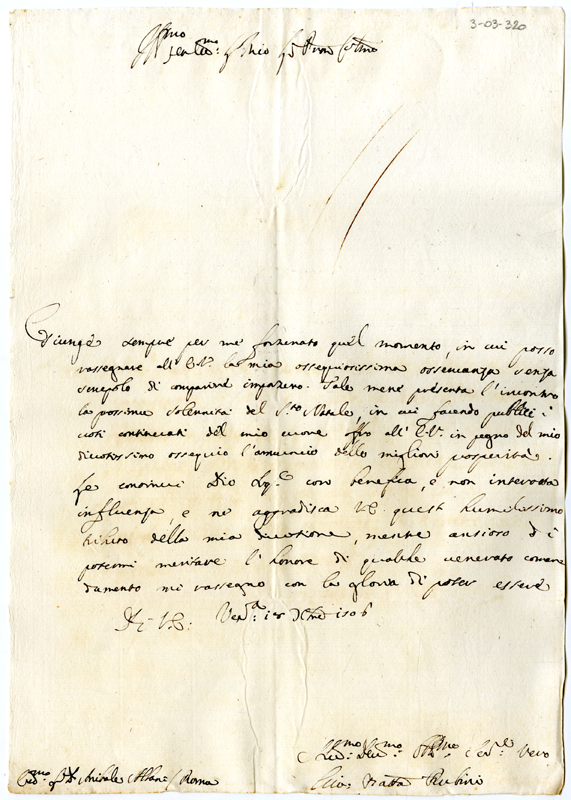 3-03-320
Giunge sempre per me fortunato quel momento, in cui posso
rassegnare all' E.V. la mia ossequiosissima osservanza senza
scrupolo di comparire importuno. Tale mene presenta l'incontro
la possima solennità del S.to Natale, in cui facendo publici i
voti continuati del mio cuore offro all' E.V. in pegno del mio
divotissimo ossequio l'annuncio delle migliori prosperità.
Le concorra Dio con benefica, e non interrotta
influenza, e ne aggradisca V.E. quest' humilissimo
tributo della mia divotione, mentre ansioso di
potermi meritare l'honore di qualche venerato coman
damento mi rassegno con la gloria di poter essere
Di V.E. Ven.a 18 Xbre 1706
Hu.mo Div.mo Obb.mo Ser.re Vero
Gio: Batta Rubini
Annibale Albani / Roma